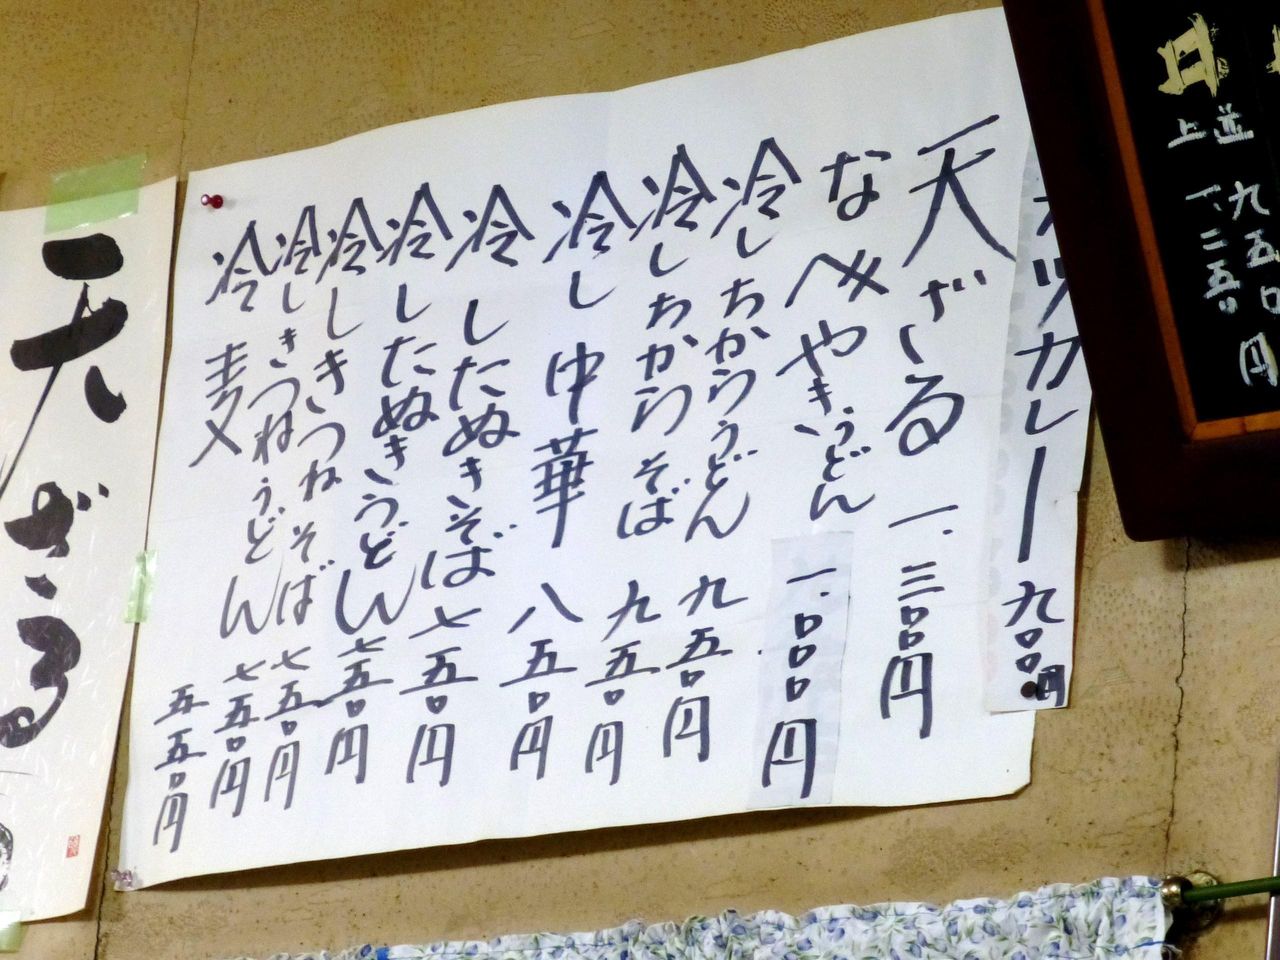 並 九五〇円
上 一、二五〇
カツカレー 九〇〇円
天ざる 一、三〇〇円
なべやきうどん 一、〇〇〇円
冷しちからうどん 九五〇円
冷しちからそば 九五〇円
冷し中華 八五〇円
冷したぬきそば 七五〇円
冷したぬきうどん 七五〇円
冷しきつねそば 七五〇円
冷しきつねうどん 七五〇円
冷麦 五五〇円
天ざる